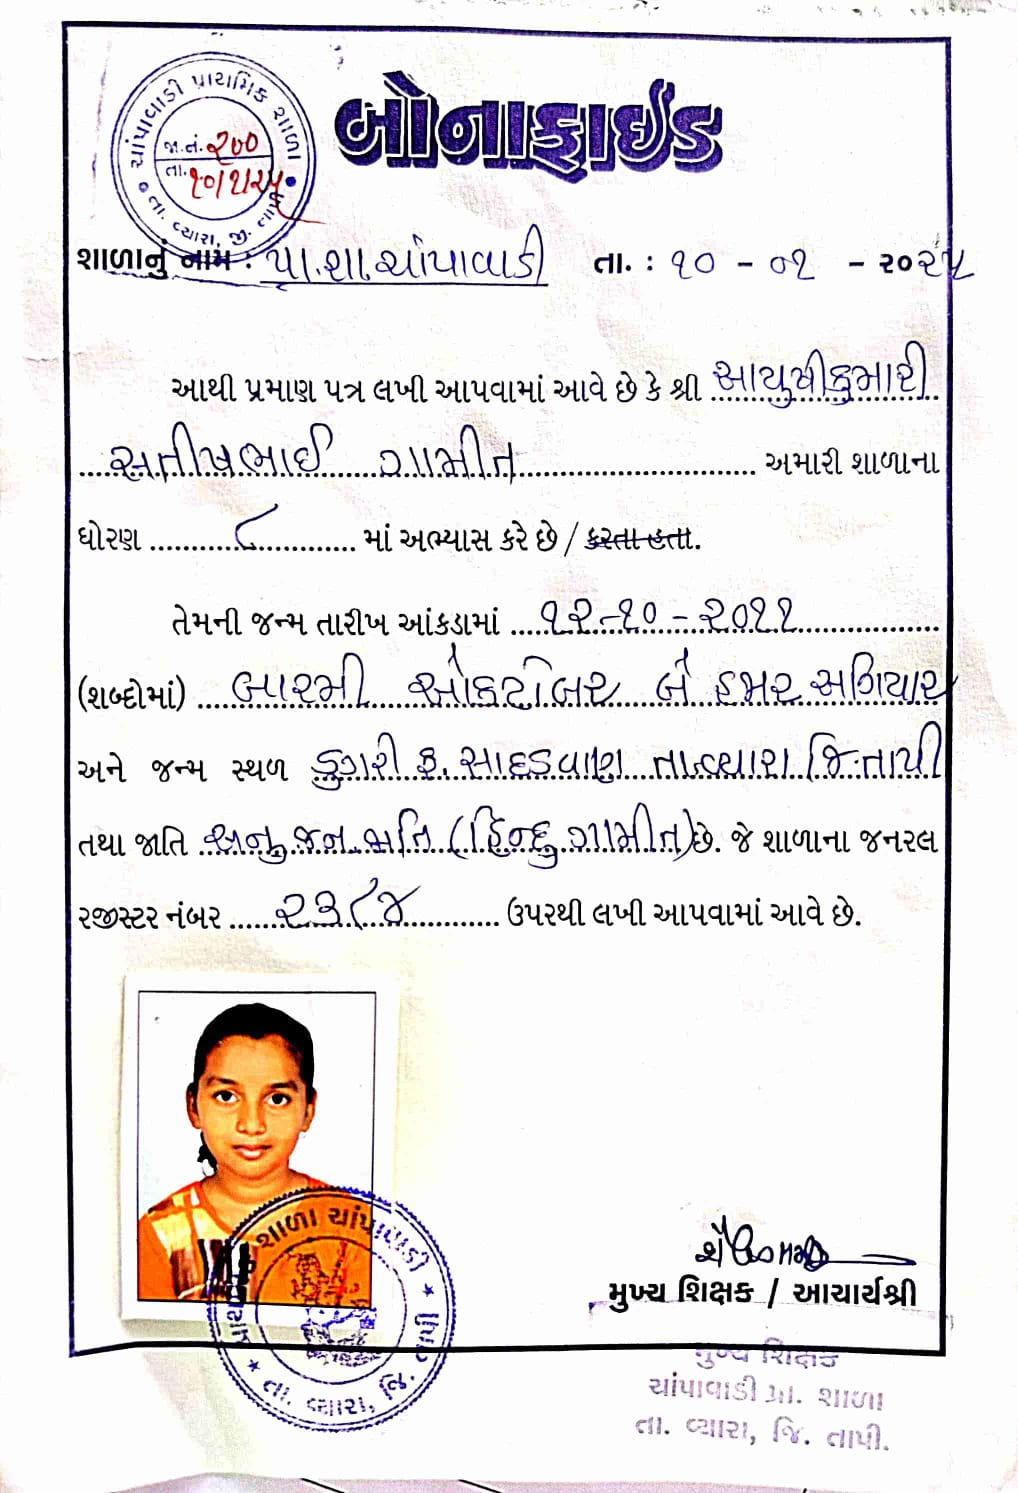 ચાંપાવાડી પ્રાથમિક શાળા
જા.નં. ૨૭૦
તા. ૧૦/૧/૨૫
તા. વ્યારા, જી. તાપી
બોનાફાઈડ
શાળાનું નામ : પ્રા.શા.ચાંપાવાડી તા. : ૧૦ - ૦૧ - ૨૦૨૫
આથી પ્રમાણ પત્ર લખી આપવામાં આવે છે કે શ્રી આયુષીકુમારી
સતીષભાઈ ગામીત અમારી શાળાના
ધોરણ ૮ માં અભ્યાસ કરે છે / કરતા હતા.
તેમની જન્મ તારીખ આંકડામાં ૧૨-૧૦-૨૦૧૧
(શબ્દોમાં) બારમી ઓકટોબર બે હજાર અગિયાર
અને જન્મ સ્થળ ડુંગરી ફ. સાદડવાણ તા.વ્યારા જિ.તાપી
તથા જાતિ અનુ.જન.જાતિ (હિન્દુ ગામીત) છે. જે શાળાના જનરલ
રજીસ્ટર નંબર ૨૩૮૪ ઉપરથી લખી આપવામાં આવે છે.
શાળા ચાંપાવાડી
તા. વ્યારા, જિ. તાપી
મુખ્ય શિક્ષક / આચાર્યશ્રી
મુખ્ય શિક્ષક
ચાંપાવાડી પ્રા. શાળા
તા. વ્યારા, જિ. તાપી.